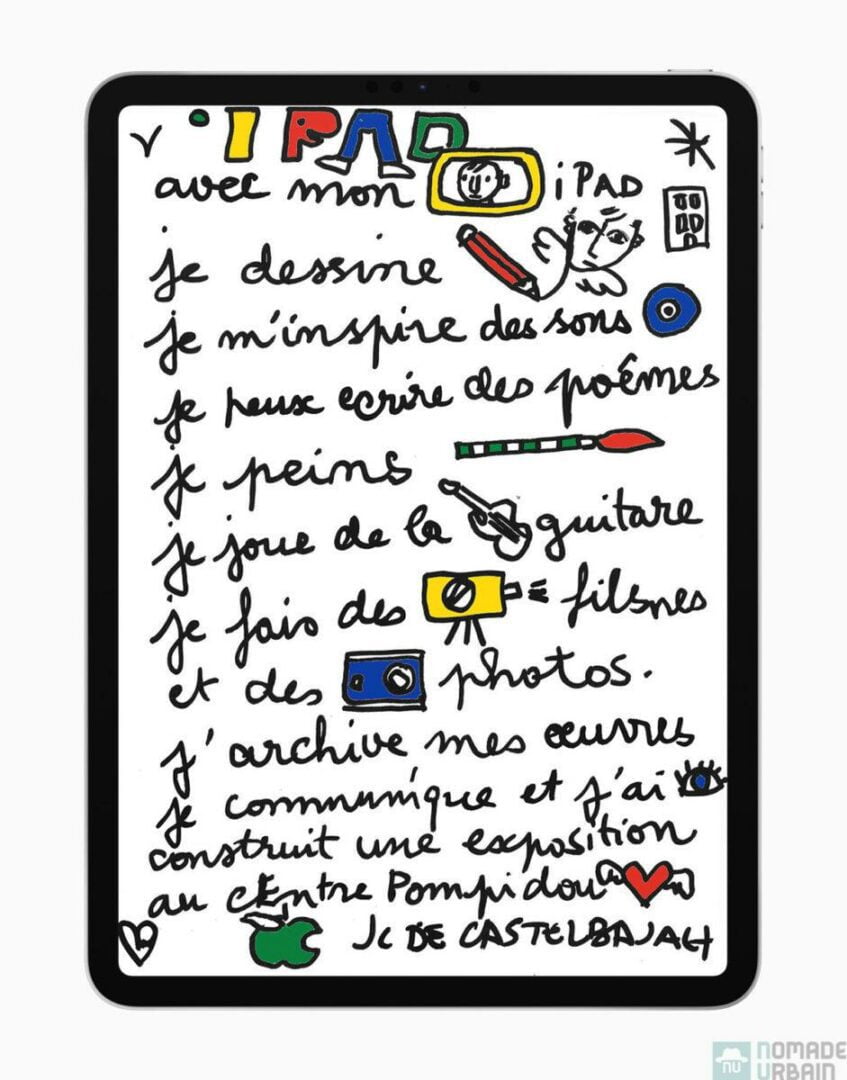 IPAD
avec mon iPAD
je dessine
je m'inspire des sons
je peux ecrire des poémes
je peins
je joue de la guitare
je fais des filsnes
et des photos.
j'archive mes œuvres
je communique et j'ai
construit une exposition
au cEntre Pompidou
JC DE CASTELBAJAC
NOMADE
nu URBAIN